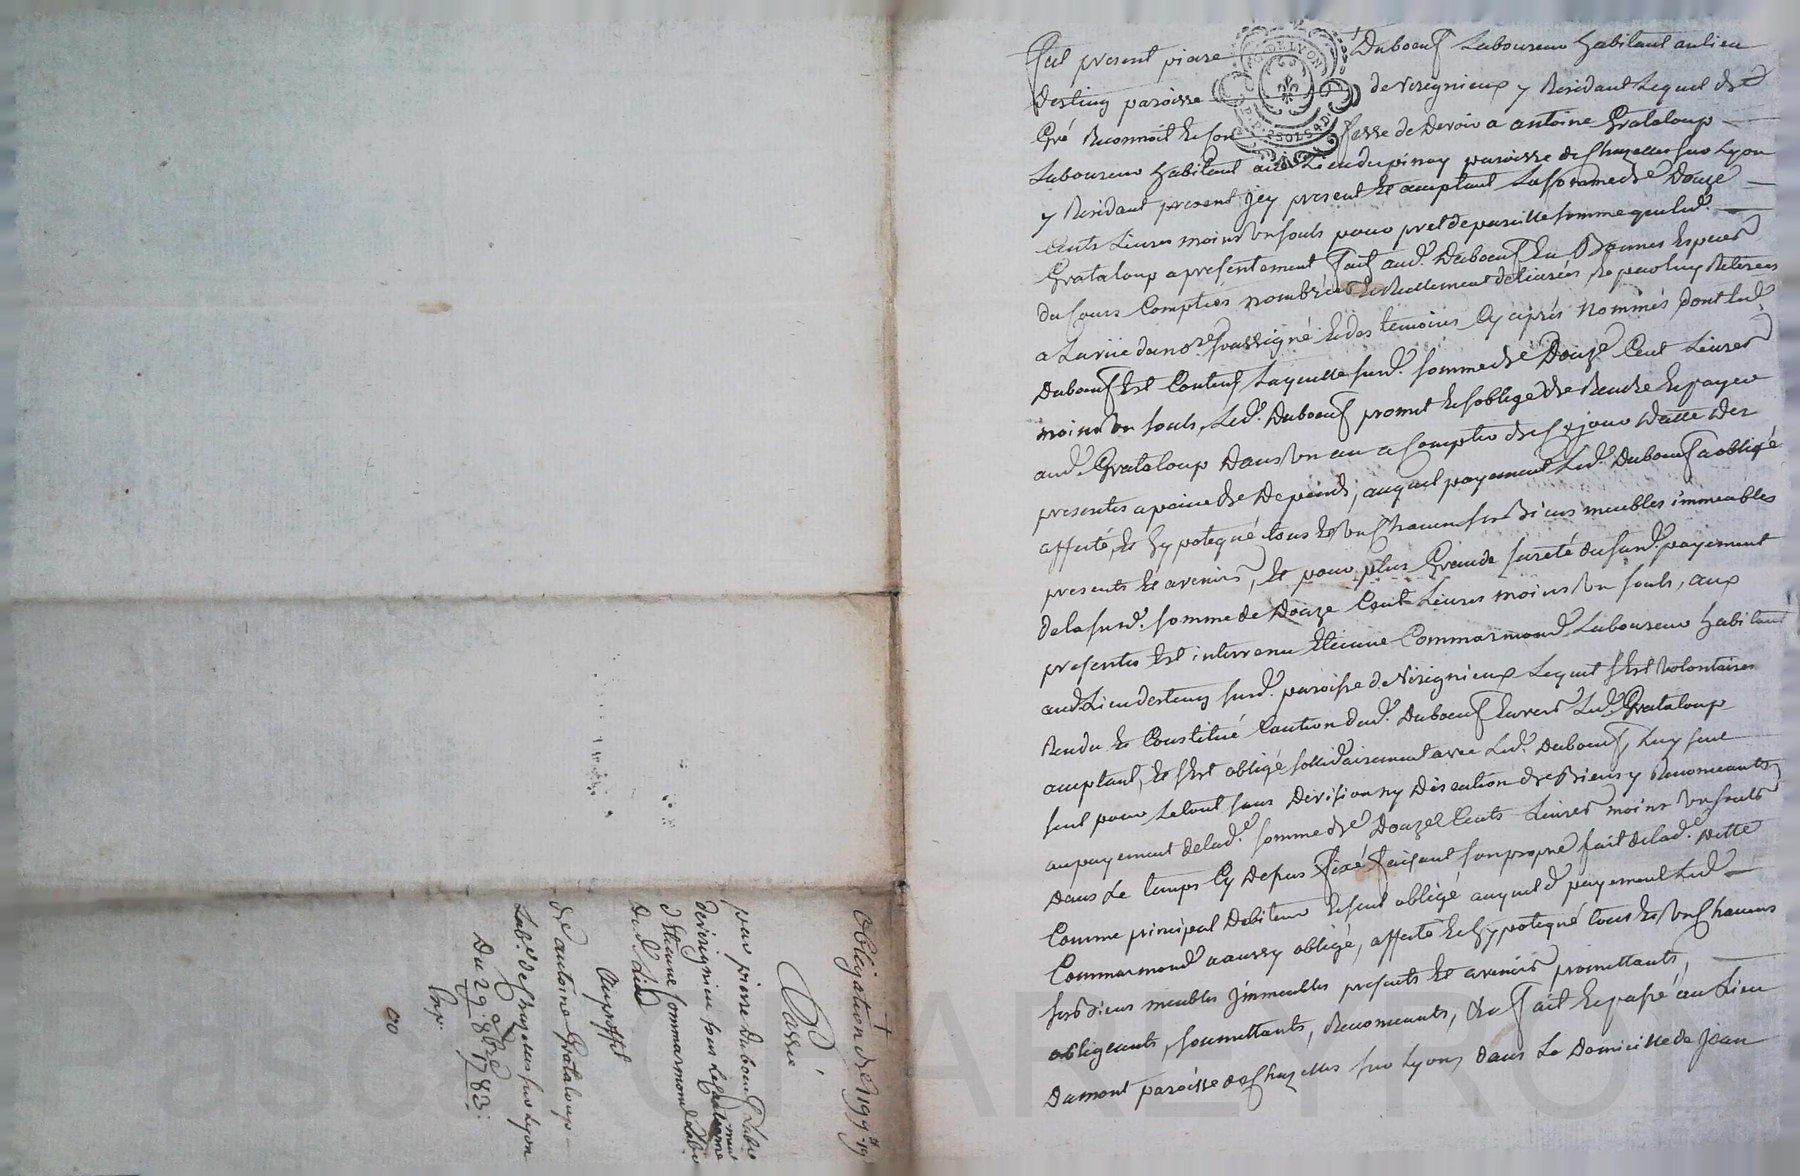 fut present piere Duboeuf Laboureur habitant au lieu
destiny paroisse de Virignieux y Residant Lequel de
Gré Reconnoit et Confesse de devoir a antoine Grataloup
Laboureur habitant au Lieu dupinay paroisse de Chazelles sur Lyon
y Residant present jcy present et acceptant La somme de Douze
cents Livres moins un souls pour pret de pareille somme que led.
Grataloup a presentement fait aud. Duboeuf En Bonnes Especes
du Cours Comptés nombrées et Reellement délivrées et par luy Retirées
a La vüe du nore soussigné et des temoins Cy aprés Nommés dont led.
Duboeuf Est Content Laquelle susd. somme de Douze Cent Livres
moins un souls, Led. Duboeuf promet et soblige de Rendre et payer
aud. Grataloup Dans un an a Compter de Ce jour Datte des
presentes a peine de Depends, auquel payement Led. Duboeuf a obligé
affecté, et hypotequé tous et un Chacun ses Biens meubles immeubles
presents et avenirs, et pour plus Grande sureté du susd. payement
de la susd. somme de Douze Cent Livres moins un souls, aux
presentes Est intervenu Etienne Commarmond Laboureur habitant
aud. Lieu destiny susd. paroisse de Virignieux Lequel s'Est volontaires
Rendu et Constitué Caution dud. Duboeuf Envers Led. Grataloup
acceptant, et s'Est obligé sollidairement avec Led. Duboeuf, Luy seul
seul pour Le tout sans Division ny Discution de Biens y Renonceants
au payement de lad. somme de Douze Cents Livres moins un souls
Dans Le temps Cy Depus fixé faisant son propre fait de lad. Dette
Comme principal Debiteur et seul obligé auquel payement Led.
Commarmond a aussy obligé, affecté et hypotequé tous et un Chacuns
ses Biens meubles jmmeubles presents et avenirs promettants,
obligeants, soumettants, Renonceants, fait et passé au Lieu
Dumont paroisse de Chazelles sur Lyon, dans Le Domicille de Jean
COLLYON
2 SOLS 4 D
Obligation de 1199 lt 19 s
Passé
par pierre Duboeuf Labr
de virignieux sous le Cautionnement
d'Etienne Commarmond Labr
Dud. Lieu
Au proffit
de antoine Grataloup
Labr. de Chazelles sur Lyon
Du 29. 8bre 1783.
Exp.
CHARLEYRON